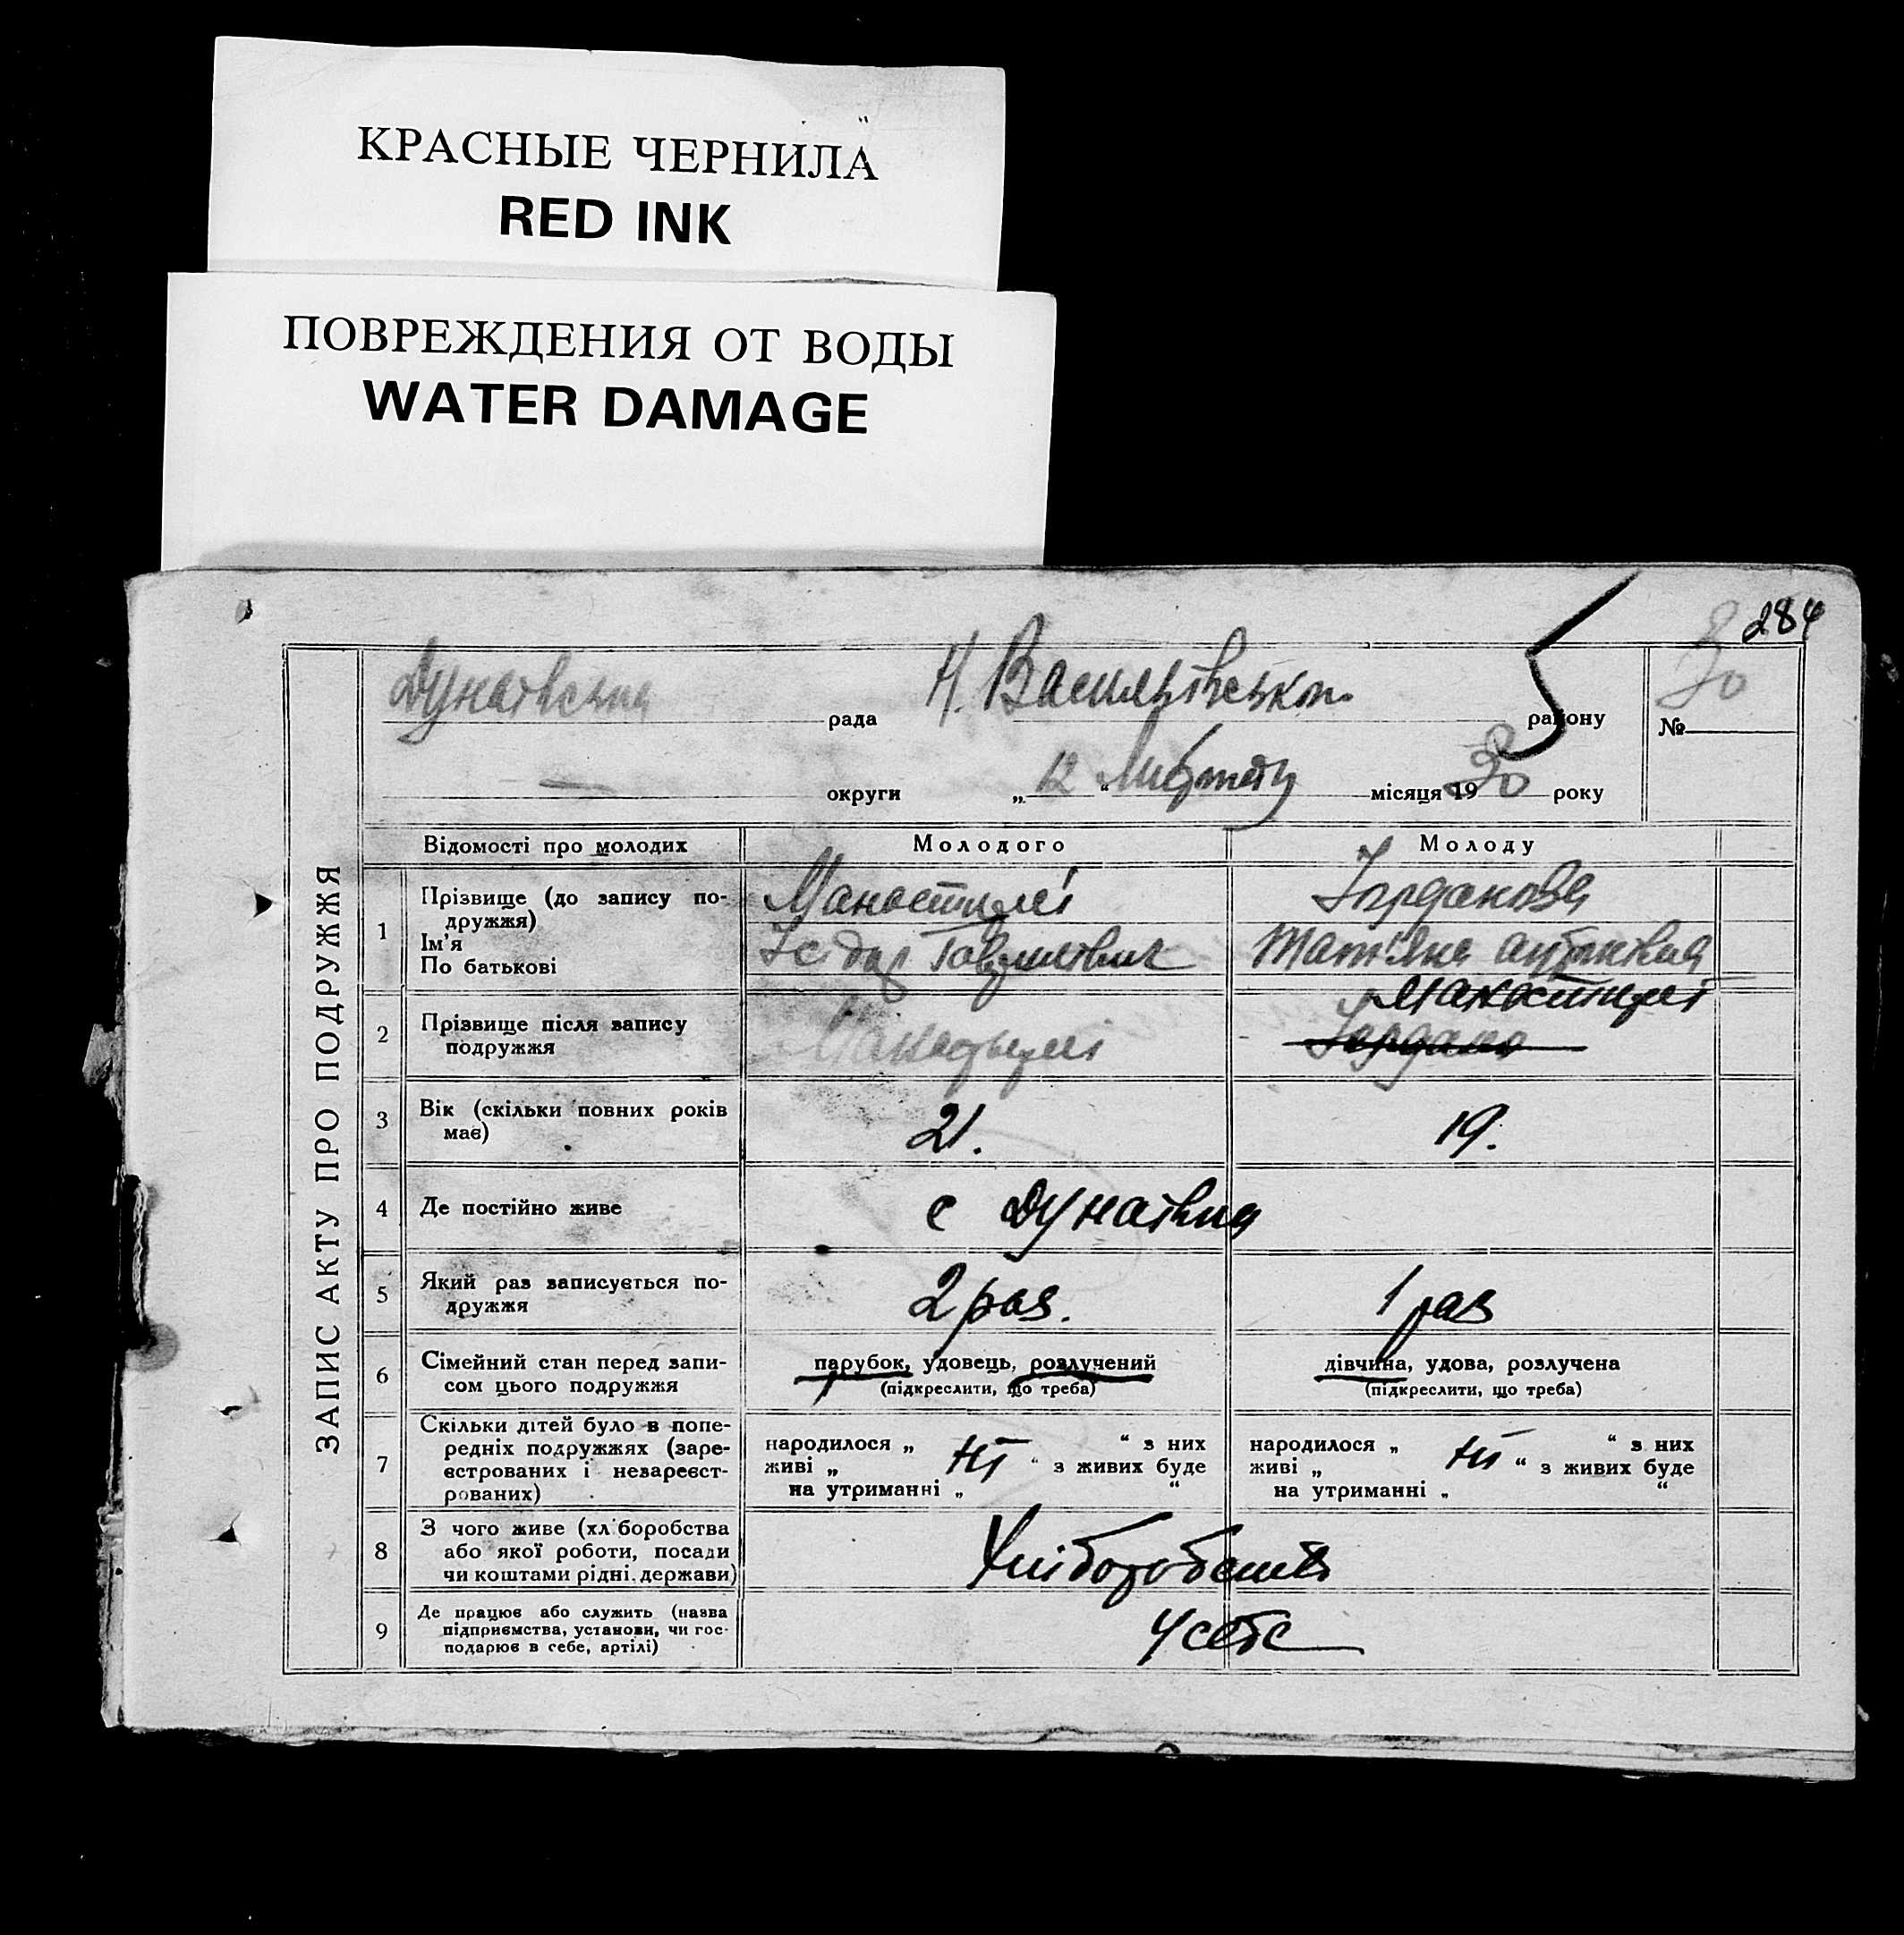 КРАСНЫЕ ЧЕРНИЛА
RED INK
ПОВРЕЖДЕНИЯ ОТ ВОДЫ
WATER DAMAGE
284
ЗАПИС АКТУ ПРО ПОДРУЖЖЯ
Дунаівська рада Н. Васильівськог району №
округи „ 12 “ місяця 19 30 року
Відомості про молодих Молодого Молоду
1 Прізвище (до запису по-
дружжя)
Ім'я
По батькові
Манастирлі Іорданова
Ісідор Гаврилович Тат'яна
2 Прізвище після запису
подружжя
Манастирлі
Манастирлі Іордано
3 Вік (скільки повних років
має)
21. 19.
4 Де постійно живе с Дунаівка
5 Який раз записується по-
дружжя
2 раз. 1 раз
6 Сімейний стан перед запи-
сом цього подружжя
парубок, удовець, розлучений
(підкреслити, що треба)
дівчина, удова, розлучена
(підкреслити, що треба)
7 Скільки дітей було в попе-
редніх подружжях (заре-
єстрованих і незареєст-
рованих)
народилося „ ні “ з них
живі „ “ з живих буде
на утриманні „ “
народилося „ ні “ з них
живі „ “ з живих буде
на утриманні „ “
8 З чого живе (хліборобства
або якої роботи, посади
чи коштами рідні, держави)
Хліборобств
9 Де працює або служить (назва
підприємства, установи, чи гос-
подарює в себе, артілі)
У себе